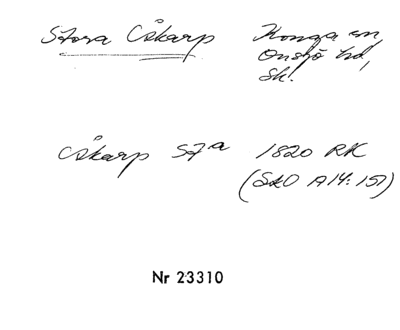 Stora Åkarp Konga sn,
Onsjö hd,
Sk.
Åkarp St^a 1820 RK
(SkO A14:151)
Nr 23310